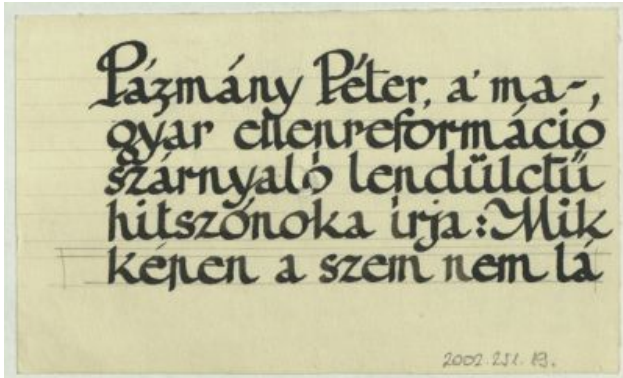 Pázmány Péter, a' ma-,
gyar ellenreformáció
szárnyaló lendületű
hitszónoka irja: Mik
képen a szem nem lá
2002.251.19.